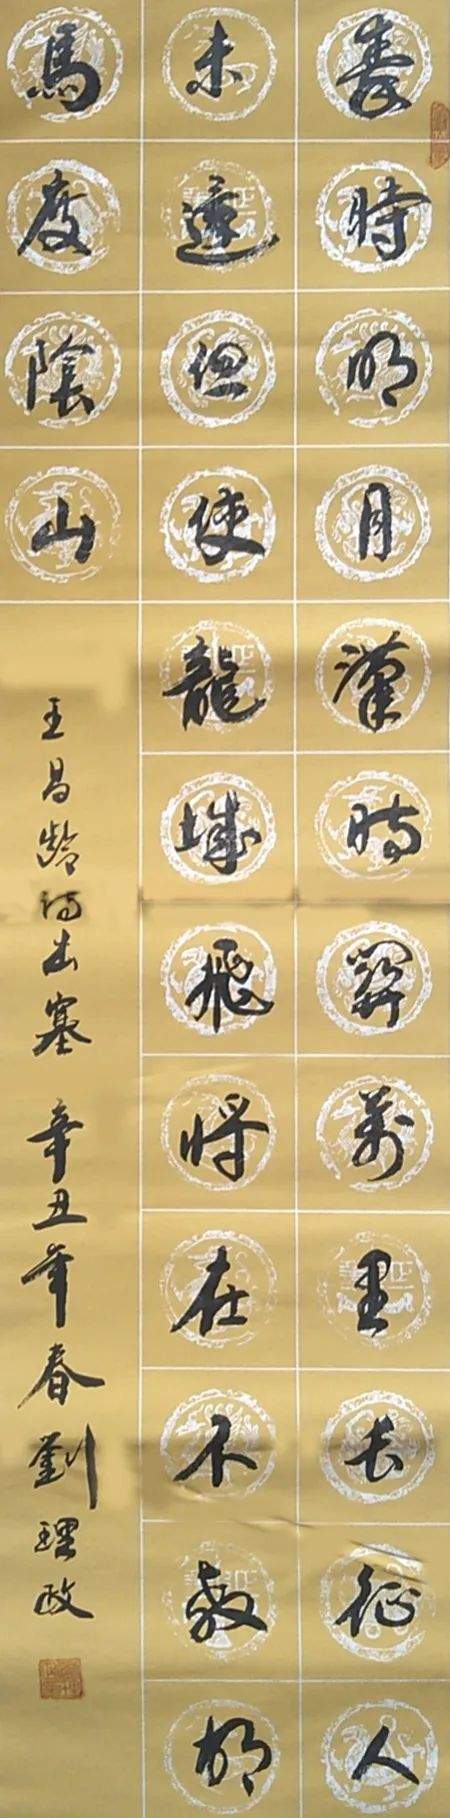 秦時明月漢時關萬里長征人
未還但使龍城飛將在不教胡
馬度陰山
王昌齡詩出塞 辛丑年春劉理政